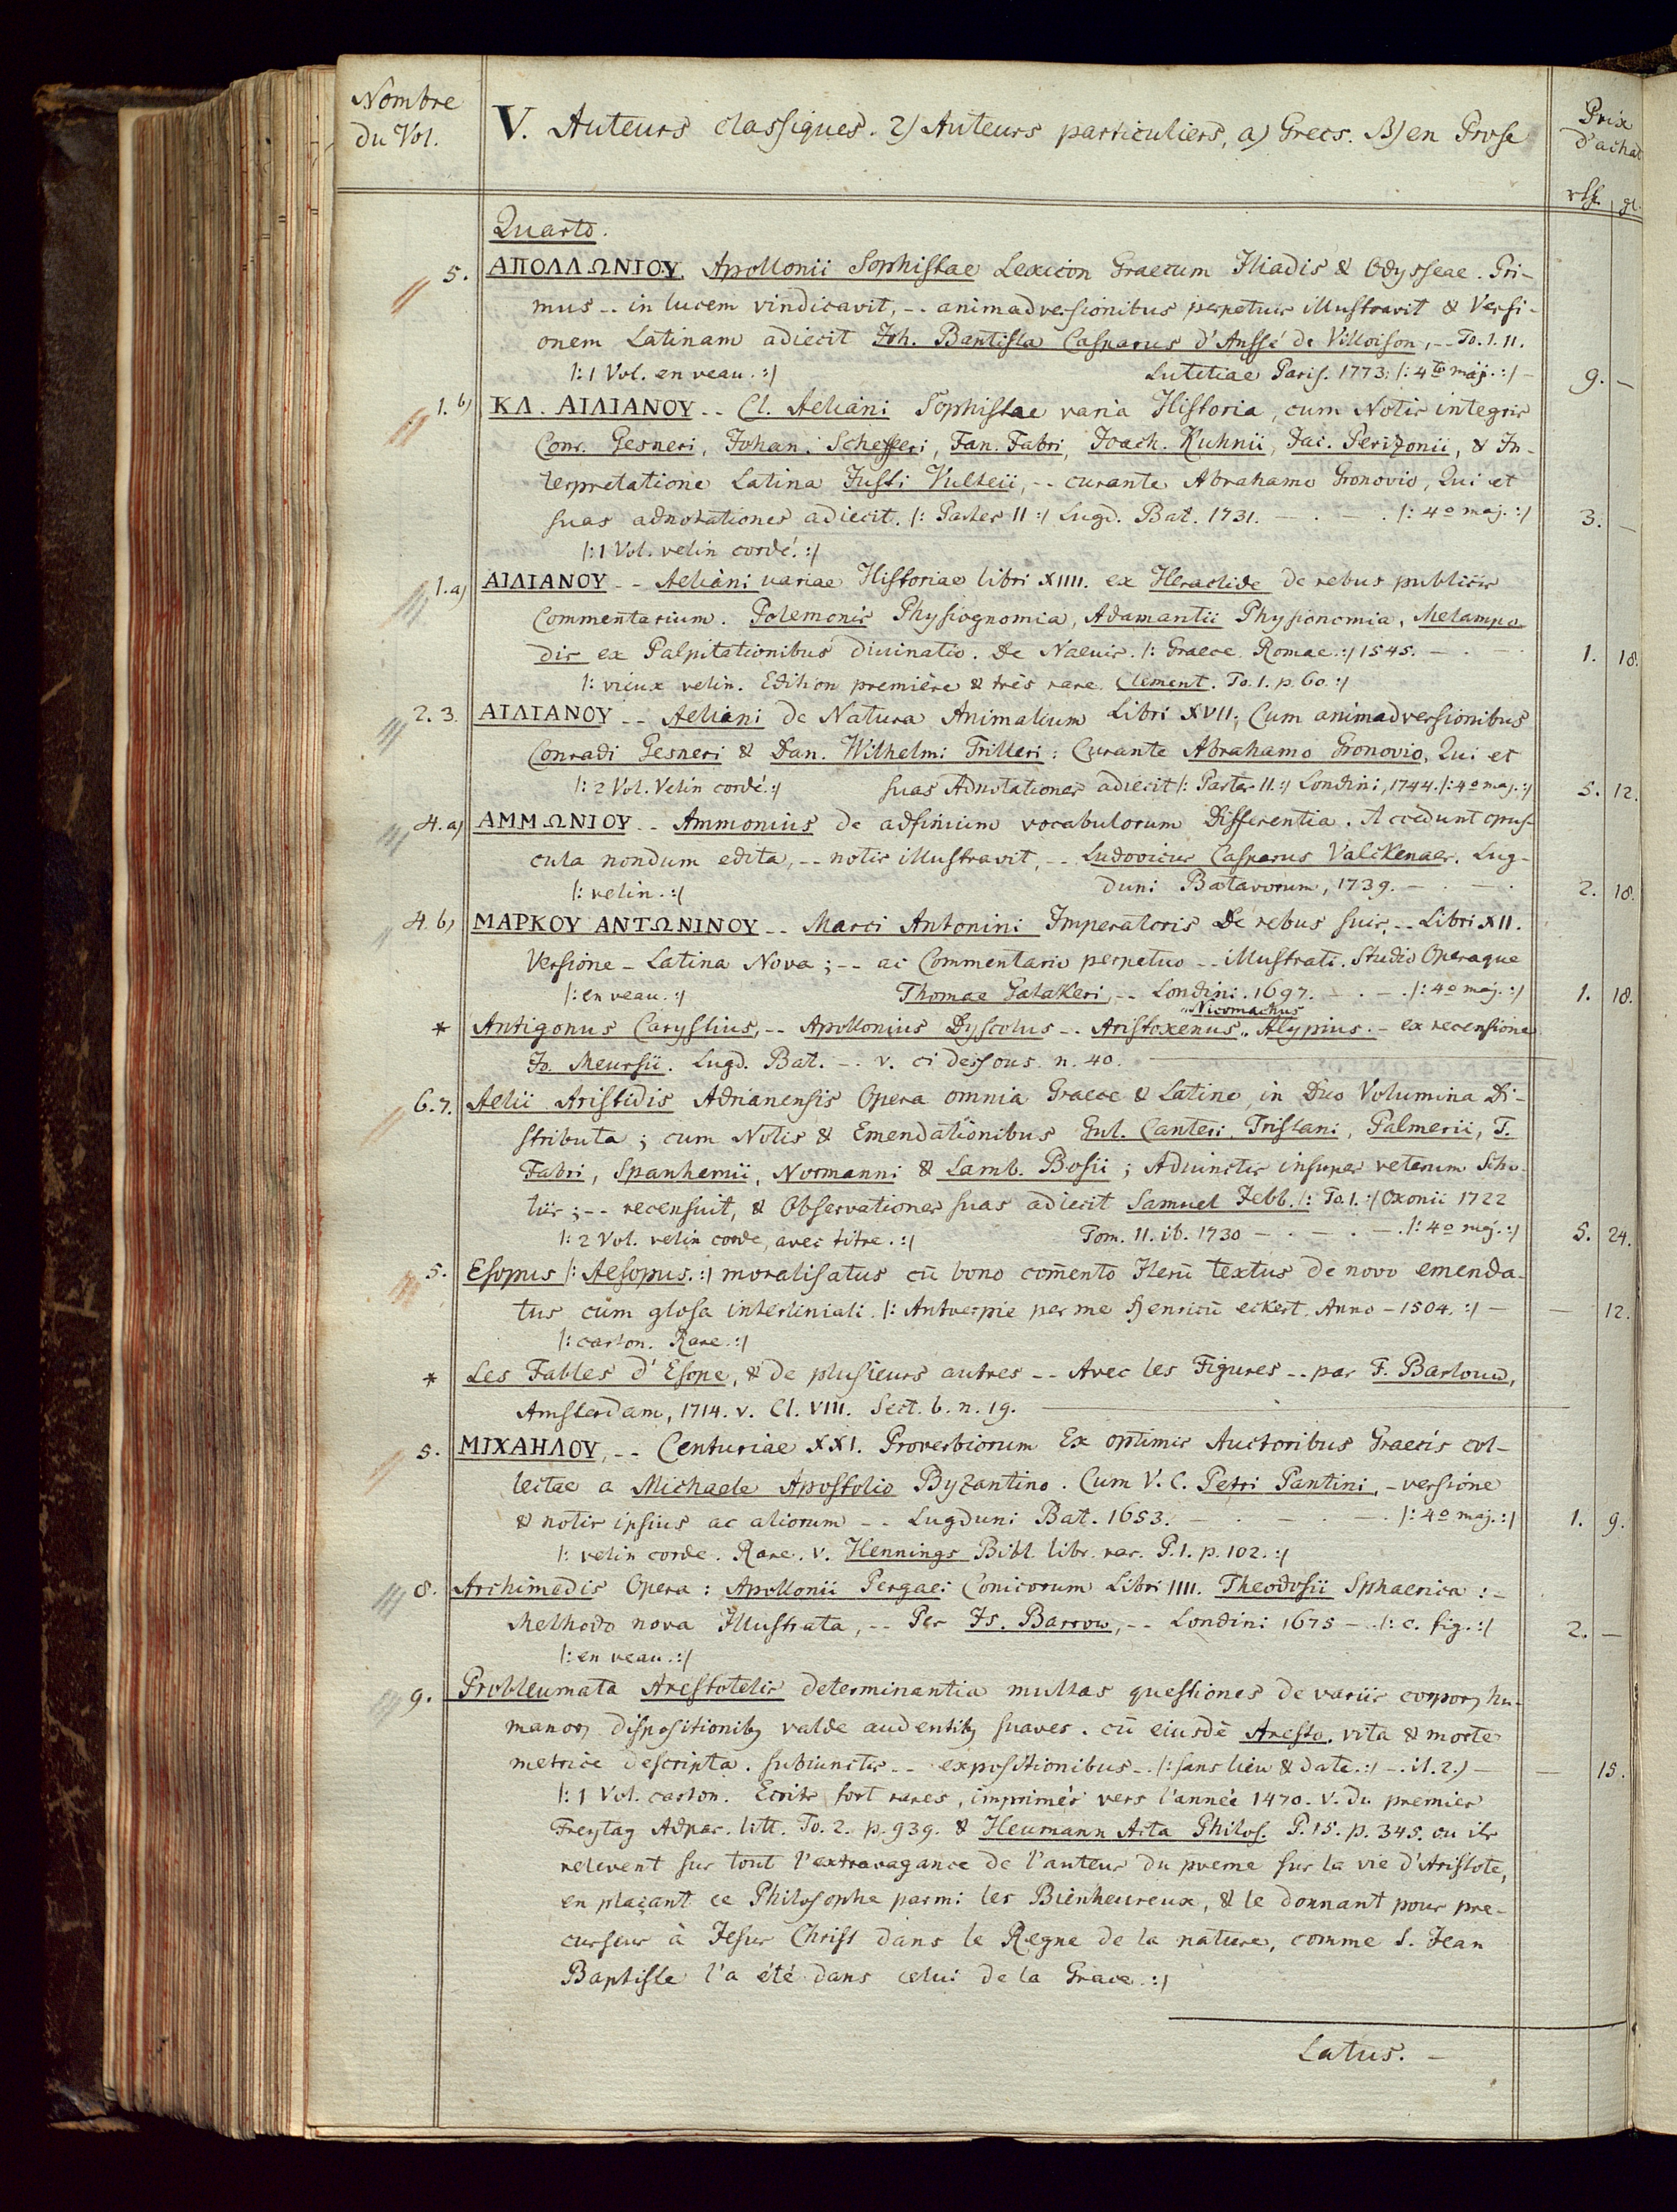 Nombre
du Vol.
V. Auteurs classiques. 2) Auteurs particuliers, a) Grecs. B) en Prose
Prix
d'achat
rth. gl.
Quarto.
5. ΑΠΟΛΛΩΝΙΟΥ. Apollonii Sophistae Lexicon Graecum Iliadis & Odysseae. Pri-
mus -- in lucem vindicavit, -- animadversionibus perpetuis illustravit & Versi-
onem Latinam adiecit Joh. Baptista Casparus d'Ansse de Villoison, -- To. I. II.
|: 1 Vol. en veau. :| Lutetiae Paris. 1773. |: 4to maj. :| - 9. -
1. b) ΚΛ. ΑΙΛΙΑΝΟΥ -- Cl. Aeliani Sophistae varia Historia, cum Notis integris
Conr. Gesneri, Johan. Schefferi, Tan. Fabri, Joach. Kuhnii, Jac. Perizonii, & In-
terpretatione Latina Justi Vulteii, -- curante Abrahamo Gronovio, Qui et
suas adnotationes adiecit. |: Partes II :| Lugd. Bat. 1731. - . - . |: 4o maj. :| 3. -
|: 1 Vol. velin cordé. :|
1. a) ΑΙΛΙΑΝΟΥ -- Aeliani variae Historiae libri XIIII. ex Heraclide de rebus publicis
Commentarium. Polemonis Physiognomia, Adamantii Physionomia, Melampo-
dis ex Palpitationibus divinatio. De Naevis. |: Graece Romae. :| 1545. - . - . 1. 18.
|: vieux velin. Edition première & très rare. Clement. To. I. p. 60. :|
2. 3. ΑΙΛΙΑΝΟΥ -- Aeliani de Natura Animalium Libri XVII; Cum animadversionibus
Conradi Gesneri & Dan. Wilhelmi Trilleri: Curante Abrahamo Gronovio, Qui et
|: 2 Vol. Velin cordé. :| suas Adnotationes adiecit |: Partes II. :| Londini, 1744. |: 4o maj. :| 5. 12.
4. a) ΑΜΜΩΝΙΟΥ -- Ammonius de adfinium vocabulorum Differentia. Accedunt opus-
cula nondum edita, -- notis illustravit, -- Ludovicus Casparus Valckenaer. Lug-
|: velin. :| duni Batavorum, 1739. - . - . 2. 18.
4. b) ΜΑΡΚΟΥ ΑΝΤΩΝΙΝΟΥ -- Marci Antonini Imperatoris De rebus suis, -- Libri XII.
Versione - Latina Nova; -- ac Commentario perpetuo -- illustrati. Studio Operaque
|: en veau. :| Thomae Gatakeri, -- Londini. 1697. - . - . |: 4o maj. :| 1. 18.
Nicomachus
* Antigonus Carystius, -- Apollonius Dyscolus -- Aristoxenus " Alypius. - ex recensione
Jo. Meursii. Lugd. Bat. -. v. ci dessous. n. 40.
6. 7. Aelii Aristidis Adrianensis Opera omnia Graece & Latine, in Duo Volumina Di-
stributa; cum Notis & Emendationibus Gul. Canteri, Tristani, Palmerii, T.
Fabri, Spanhemii, Normanni & Lamb. Bosii; Adiunctis insuper veterum Scho-
liis; -- recensuit, & Observationes suas adiecit Samuel Jebb. |: To. I. :| Oxonii 1722
|: 2 Vol. velin corde, avec titre. :| Tom. II. ib. 1730 - . - . - . |: 4o maj. :| 5. 24.
5. Esopus |: Aesopus. :| moralisatus cū bono com̄ento Iterū textus de novo emenda-
tus cum glosa interliniali. |: Antverpie per me Henricū eckert. Anno - 1504. :| - - 12.
|: carton. Rare. :|
* Les Fables d'Esope, & de plusieurs autres -- Avec les Figures -- par F. Barlouw,
Amsterdam, 1714. v. Cl. VIII. Sect. 6. n. 19.
5. ΜΙΧΑΗΛΟΥ, -- Centuriae XXI. Proverbiorum Ex optimis Auctoribus Graecis col-
lectae a Michaele Apostolio Byzantino. Cum V. C. Petri Pantini, - versione
& notis ipsius ac aliorum -- Lugduni Bat. 1653. - . - . - . |: 4o maj. :| 1. 9.
|: velin corde. Rare. v. Hennings Bibl. libr. rar. P. I. p. 102. :|
8. Archimedis Opera: Apollonii Pergaei Conicorum Libri IIII. Theodosii Sphaerica: -
Methodo nova Illustrata, -- Per Is. Barrow, -- Londini 1675 - . |: c. fig. :| 2. -
|: en veau. :|
9. Probleumata Arestotelis determinantia multas questiones de variis corporꝝ hu-
manorꝝ dispositionibꝫ valde audentibꝫ suaves. cū eiusdē Aresto. vita & morte
metrice descripta. subiunctis -- expositionibus -. |: sans lieu & date. :| -. il. 2.) - - 15.
|: 1 Vol. carton. Ecrits fort rares, imprimés vers l'année 1470. v. du premier
Freytag Adpar. litt. To. 2. p. 939. & Heumann Acta Philos. P. 15. p. 345. ou ils
relevent sur tout l'extravagance de l'auteur du poeme sur la vie d'Aristote,
en plaçant ce Philosophe parmi les Bienheureux, & le donnant pour pre-
curseur à Jesus Christ dans le Regne de la nature, comme S. Jean
Baptiste l'a été dans celui de la Grace. :|
Latus. -